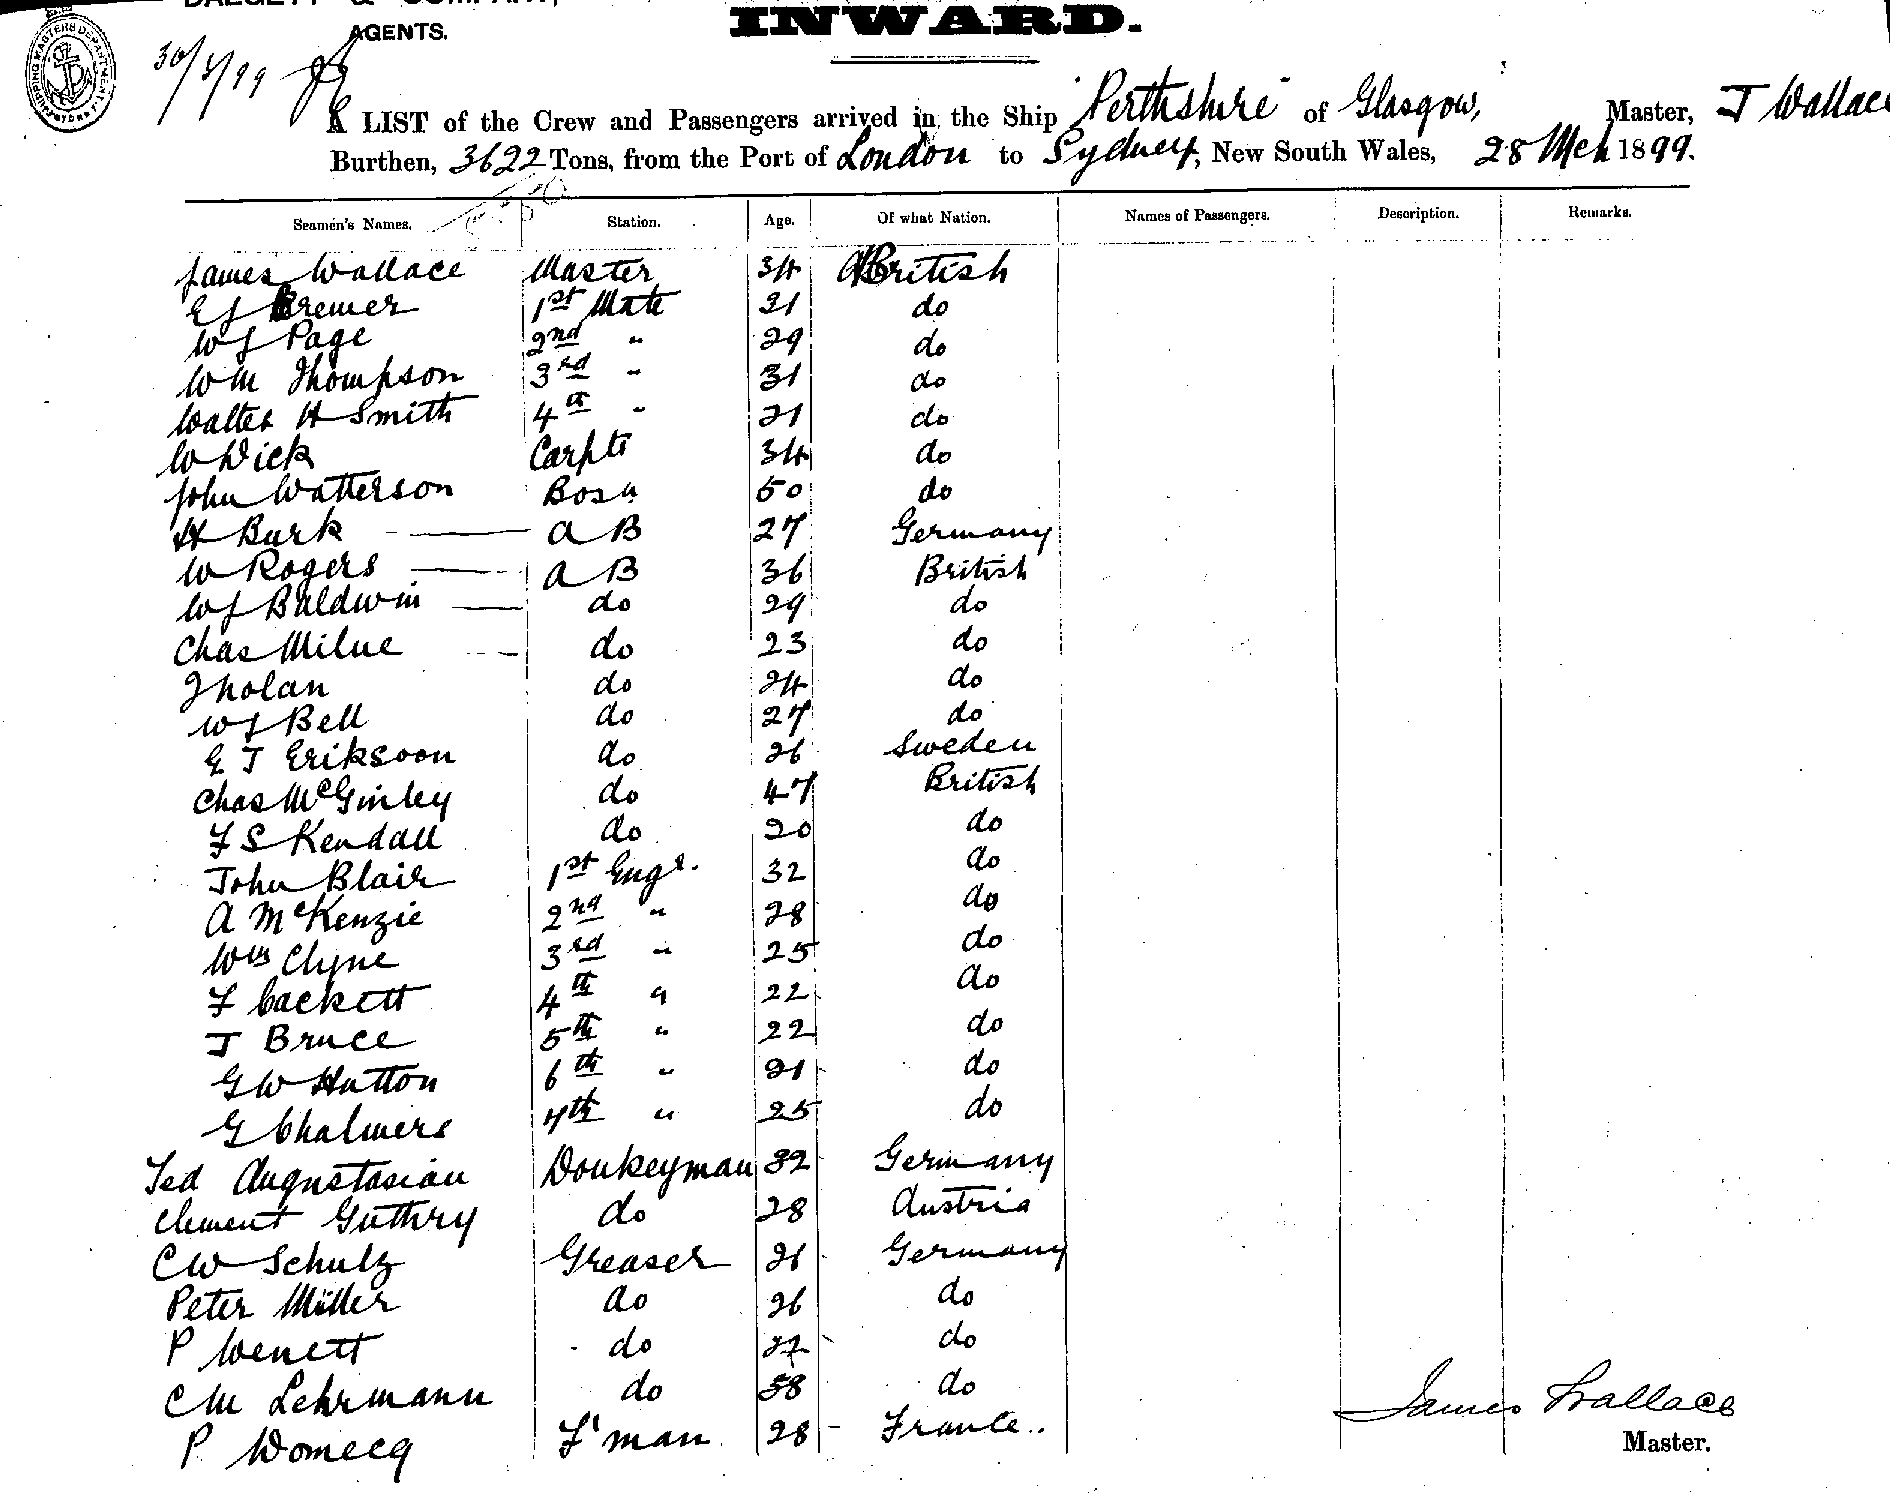 DALGETY & COMPANY,
AGENTS.
INWARD.
30/3/99
SHIPPING MASTERS DEPARTMENT
A LIST of the Crew and Passengers arrived in the Ship "Perthshire" of Glasgow, Master, J Wallace
Burthen, 3622 Tons, from the Port of London to Sydney, New South Wales, 28 Mch 1899.
Seamen's Names. Station. Age. Of what Nation. Names of Passengers. Description. Remarks.
James Wallace Master 34 British
E J Bremer 1st Mate 31 do
W J Page 2nd " 29 do
Wm Thompson 3rd " 31 do
Walter H Smith 4th " 21 do
W Dick Carptr 34 do
John Watterson Bosn 50 do
H Burk A B 27 Germany
W Rogers A B 36 British
W J Baldwin do 29 do
Chas Milne do 23 do
T Nolan do 24 do
W J Bell do 27 do
E J Eriksoon do 26 Sweden
Chas McGinley do 47 British
F S Kendall do 20 do
John Blair 1st Engr. 32 do
A McKenzie 2nd " 28 do
Wm Clyne 3rd " 25 do
F Cackett 4th " 22 do
J Bruce 5th " 22 do
G W Hutton 6th " 21 do
G Chalmers 7th " 25 do
Ted Augustasian Donkeyman 32 Germany
Clement Guthry do 28 Austria
C W Schulz Greaser 26 Germany
Peter Müller do 26 do
P Wenett do 37 do
C M Lehrmann do 38 do
P Domecq F'man 28 France..
James Wallace
Master.